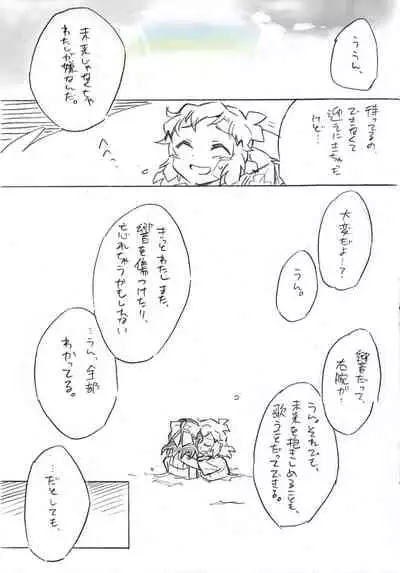 ううん、
待ってるの、
できなくて
迎えにきちゃった
けど…
未来じゃなくちゃ
わたしが嫌なんだ。
大変だよー？
うん。
響だって、
右腕が…
うん。それでも、
未来を抱きしめることも、
歌うことだってできる。
きっとわたし、また、
響を傷つけたり、
忘れちゃうかもしれない
…うん、全部
わかってる。
…だとしても、